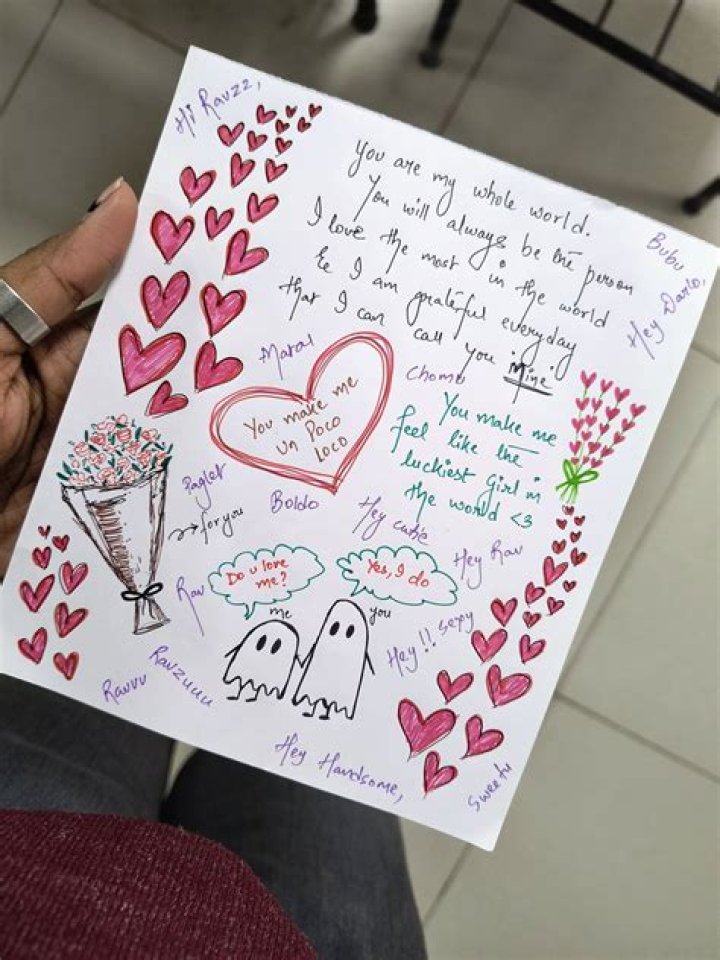 Hi Ravzz,
You are my whole world.
You will always be the person
I love the most in the world
& I am grateful everyday
that I can call you 'Mine'
Bubu
Hey Darlo,
Chomu
You make me
un Poco
Loco
You make me
feel like the
luckiest girl in
the world <3
Paglet
Boldo
Hey cutie
→ for you
Hey Rav
Do u love
me?
Yes, I do
Rav
me
you
Hey!! sexy
Ravzuuu
Ravvu
Hey Handsome,
Sweetu